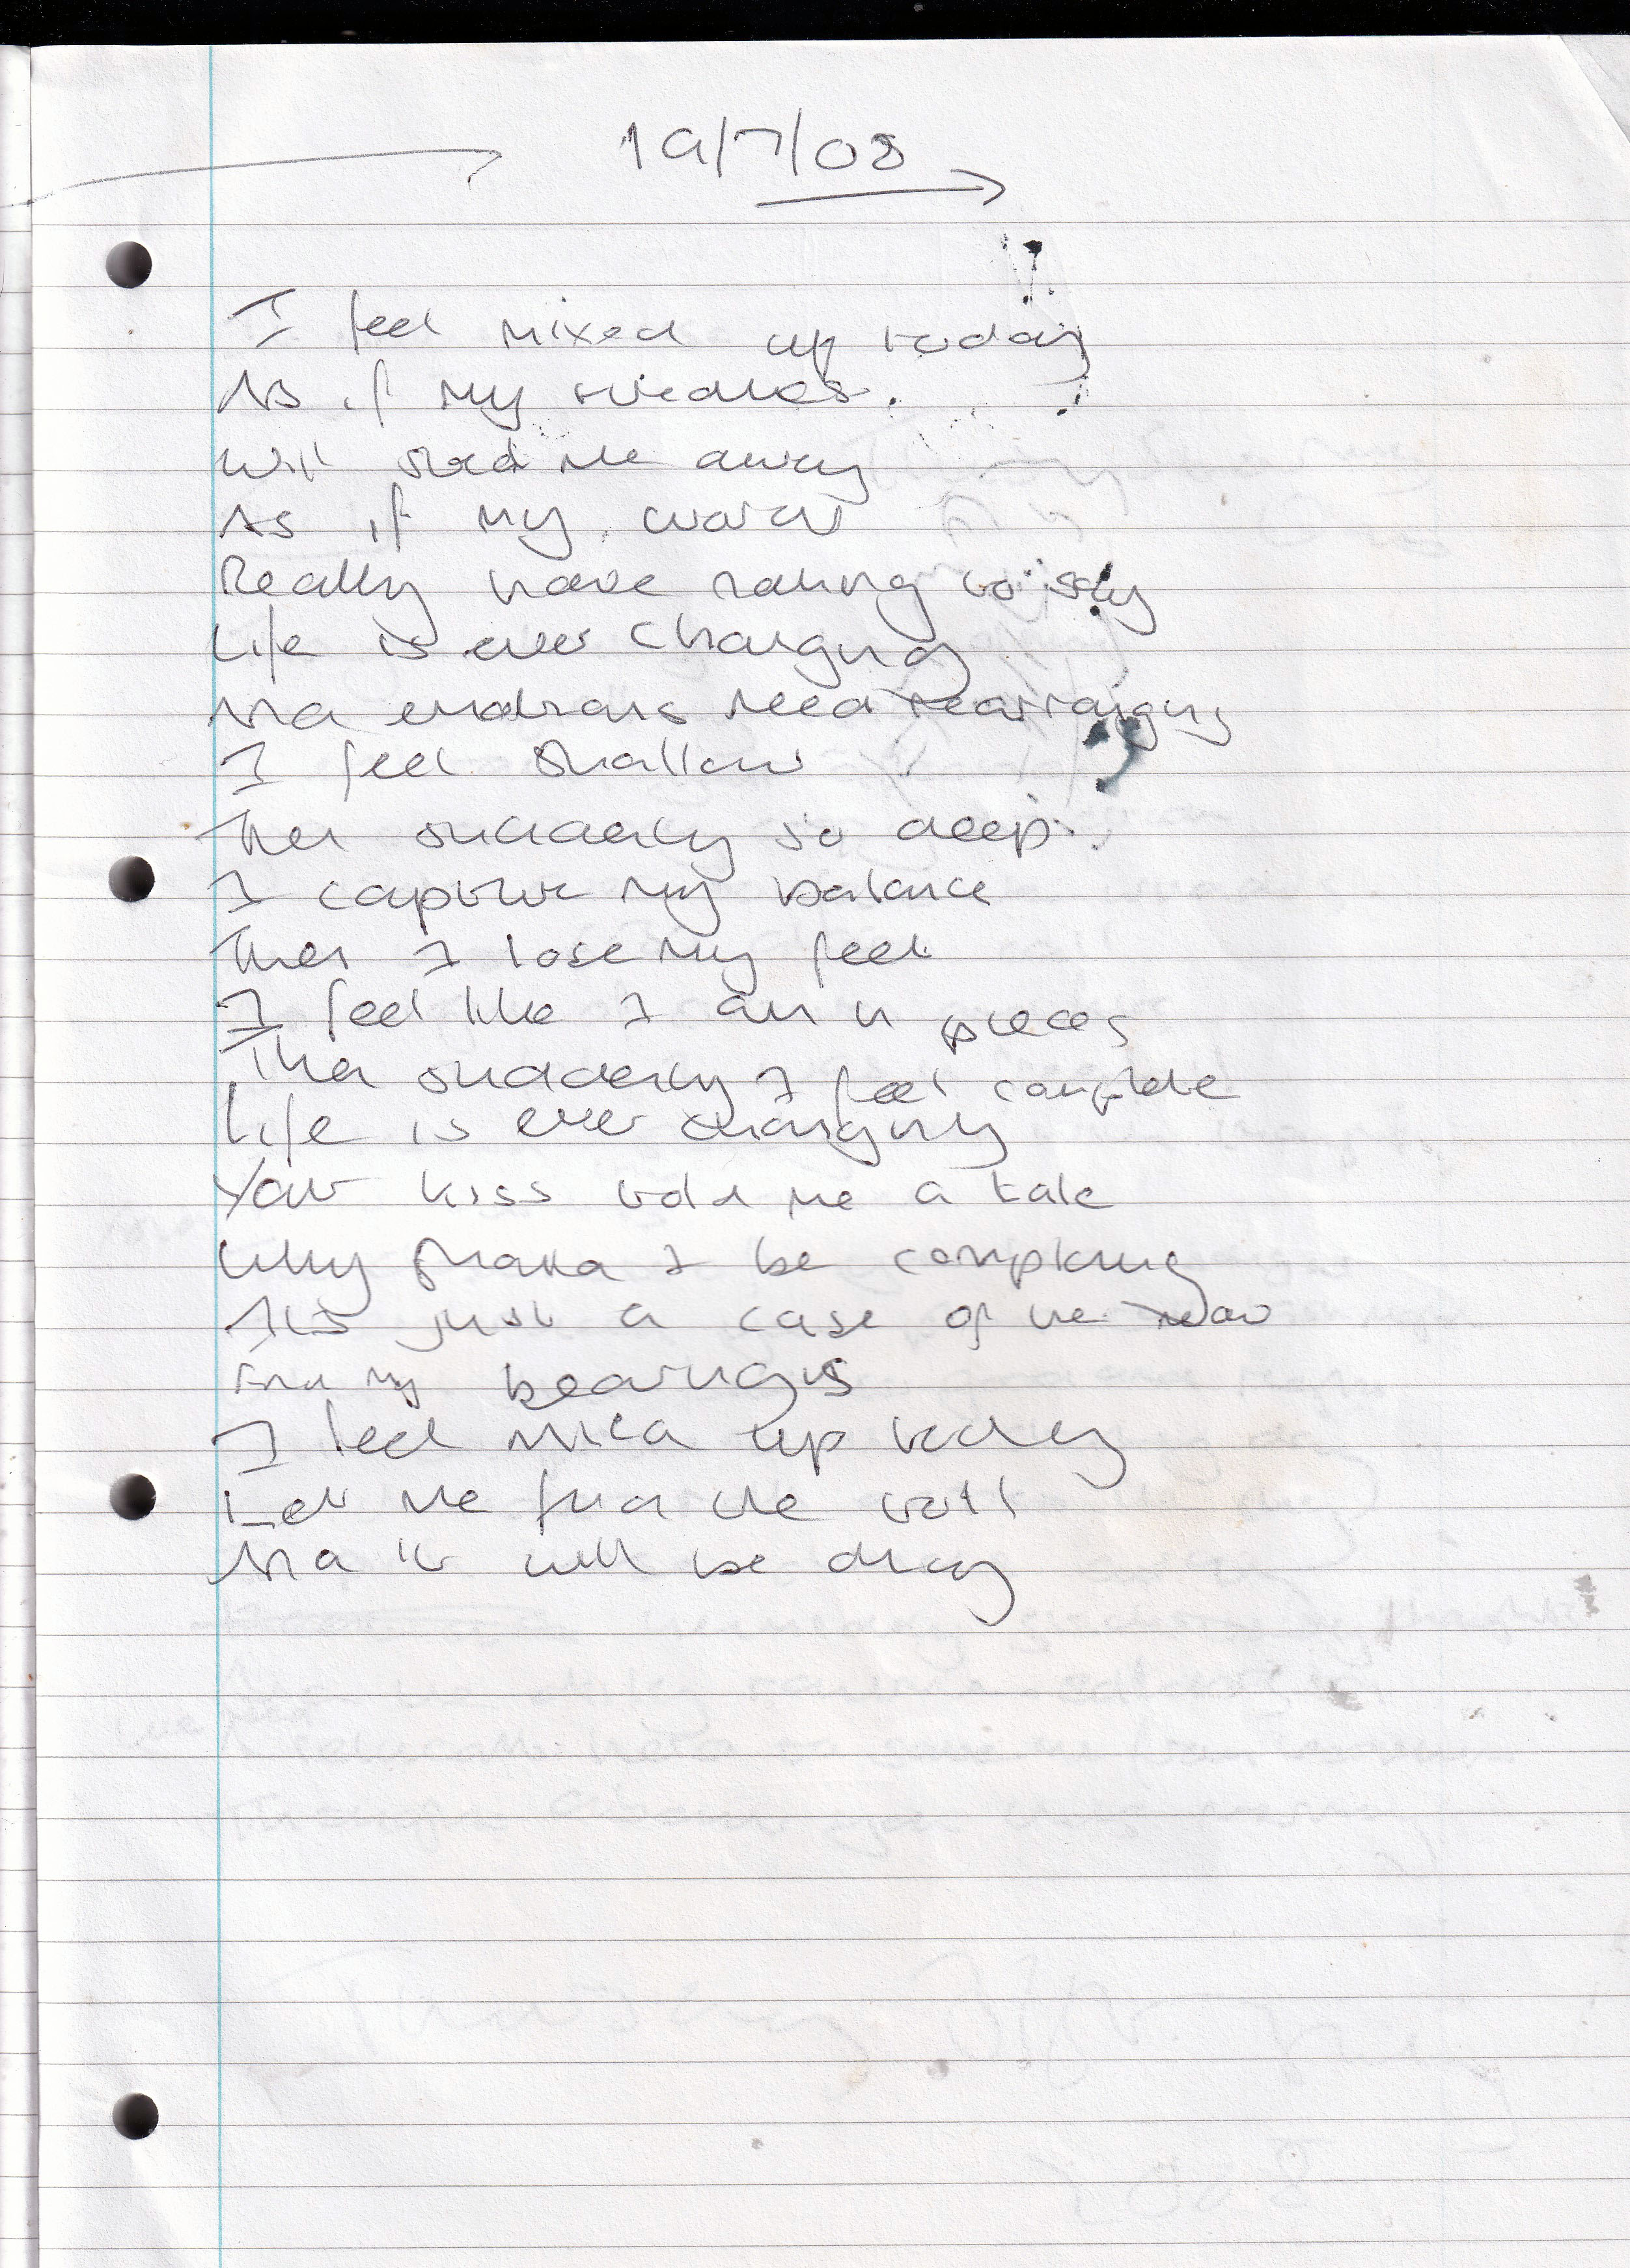 19/7/08
I feel mixed up today
As if my
Will send me away
As if my words
Really have nothing to say
Life is ever changing
And emotions need rearranging
I feel shallow
Then suddenly so deep
I capture my balance
Then I lose my feet
I feel like I am in pieces
Then suddenly I feel complete
Life is ever changing
Your kiss told me a tale
Why should I be complaining
It's just a case of me
find my bearings
I feel mixed up today
Let me find the
And it will be okay